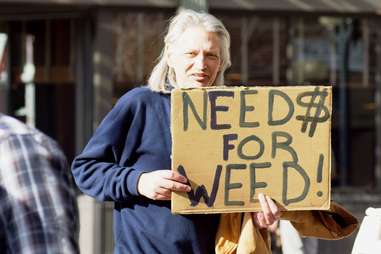 NEED$
FOR
WEED!